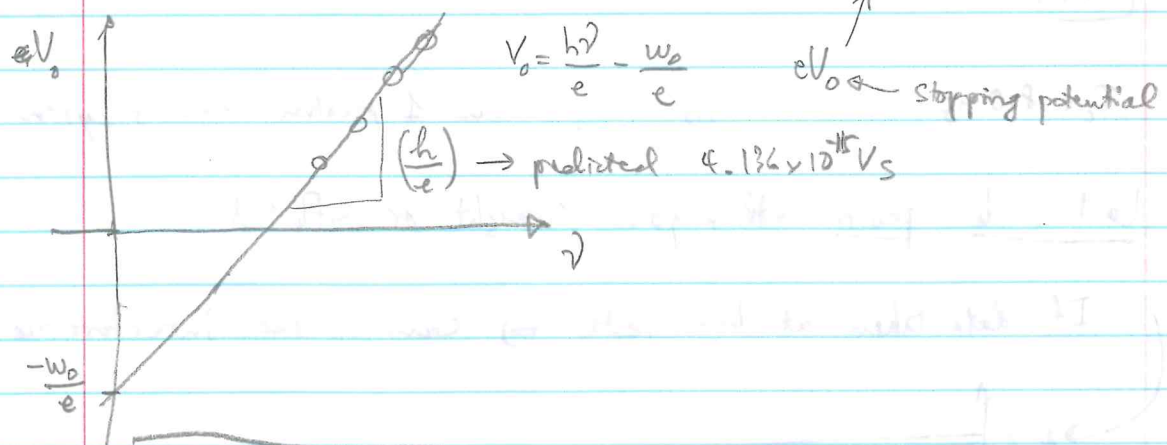 V₀
V₀ = hν/e - w₀/e
eV₀ ← stopping potential
(h/e) → predicted 4.136 x 10⁻¹⁵ Vs
ν
-w₀/e